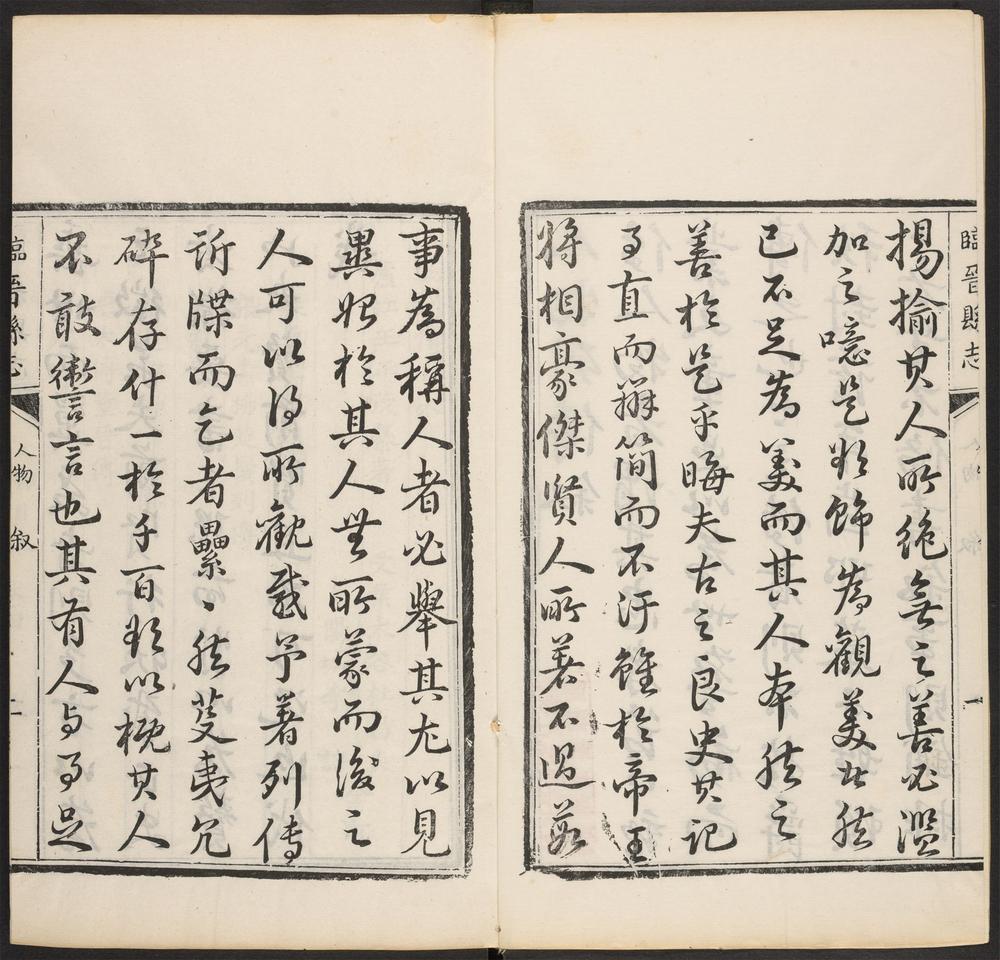 臨晉縣志
揚揄其人所絶無之善必濫
加之噫是欲飾為觀美此然
已不足為美而其人本然之
善於是乎晦夫古之良史其記
事直而辯簡而不汙雖於帝王
將相豪傑賢人所著不過數
事為稱人者必舉其尤以見
異始於其人無所蒙而後之
人可以得所觀感予著列傳
訢牒而乞者纍〻然芟夷冗
碎存什一於千百欲以概其人
不敢讏言也其有人與事足
臨晉縣志 人物 敘 二